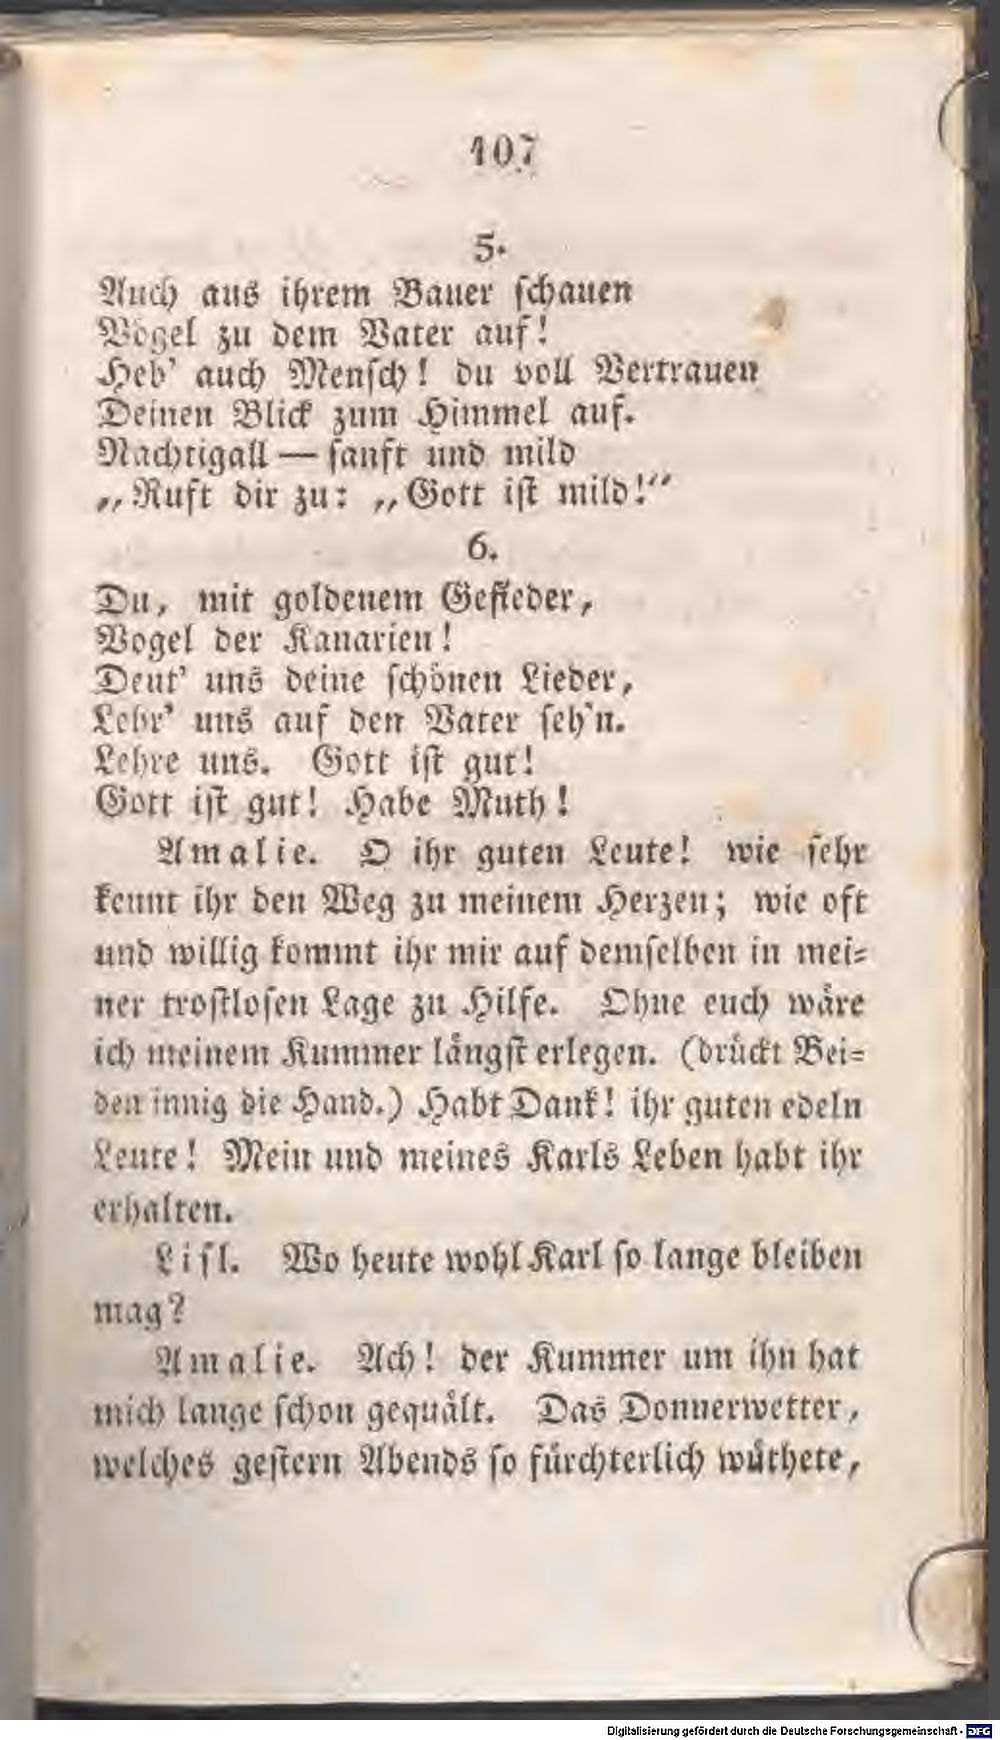 107
5.
Auch aus ihrem Bauer schauen
Vögel zu dem Vater auf!
Heb' auch Mensch! du voll Vertrauen
Deinen Blick zum Himmel auf.
Nachtigall — sanft und mild
„Ruft dir zu: „Gott ist mild!“
6.
Du, mit goldenem Gefieder,
Vogel der Kanarien!
Deut' uns deine schönen Lieder,
Lehr' uns auf den Vater seh'n.
Lehre uns. Gott ist gut!
Gott ist gut! Habe Muth!
Amalie. O ihr guten Leute! wie sehr
kennt ihr den Weg zu meinem Herzen; wie oft
und willig kommt ihr mir auf demselben in mei=
ner trostlosen Lage zu Hilfe. Ohne euch wäre
ich meinem Kummer längst erlegen. (drückt Bei=
den innig die Hand.) Habt Dank! ihr guten edeln
Leute! Mein und meines Karls Leben habt ihr
erhalten.
Lisl. Wo heute wohl Karl so lange bleiben
mag?
Amalie. Ach! der Kummer um ihn hat
mich lange schon gequält. Das Donnerwetter,
welches gestern Abends so fürchterlich wüthete,
Digitalisierung gefördert durch die Deutsche Forschungsgemeinschaft - DFG